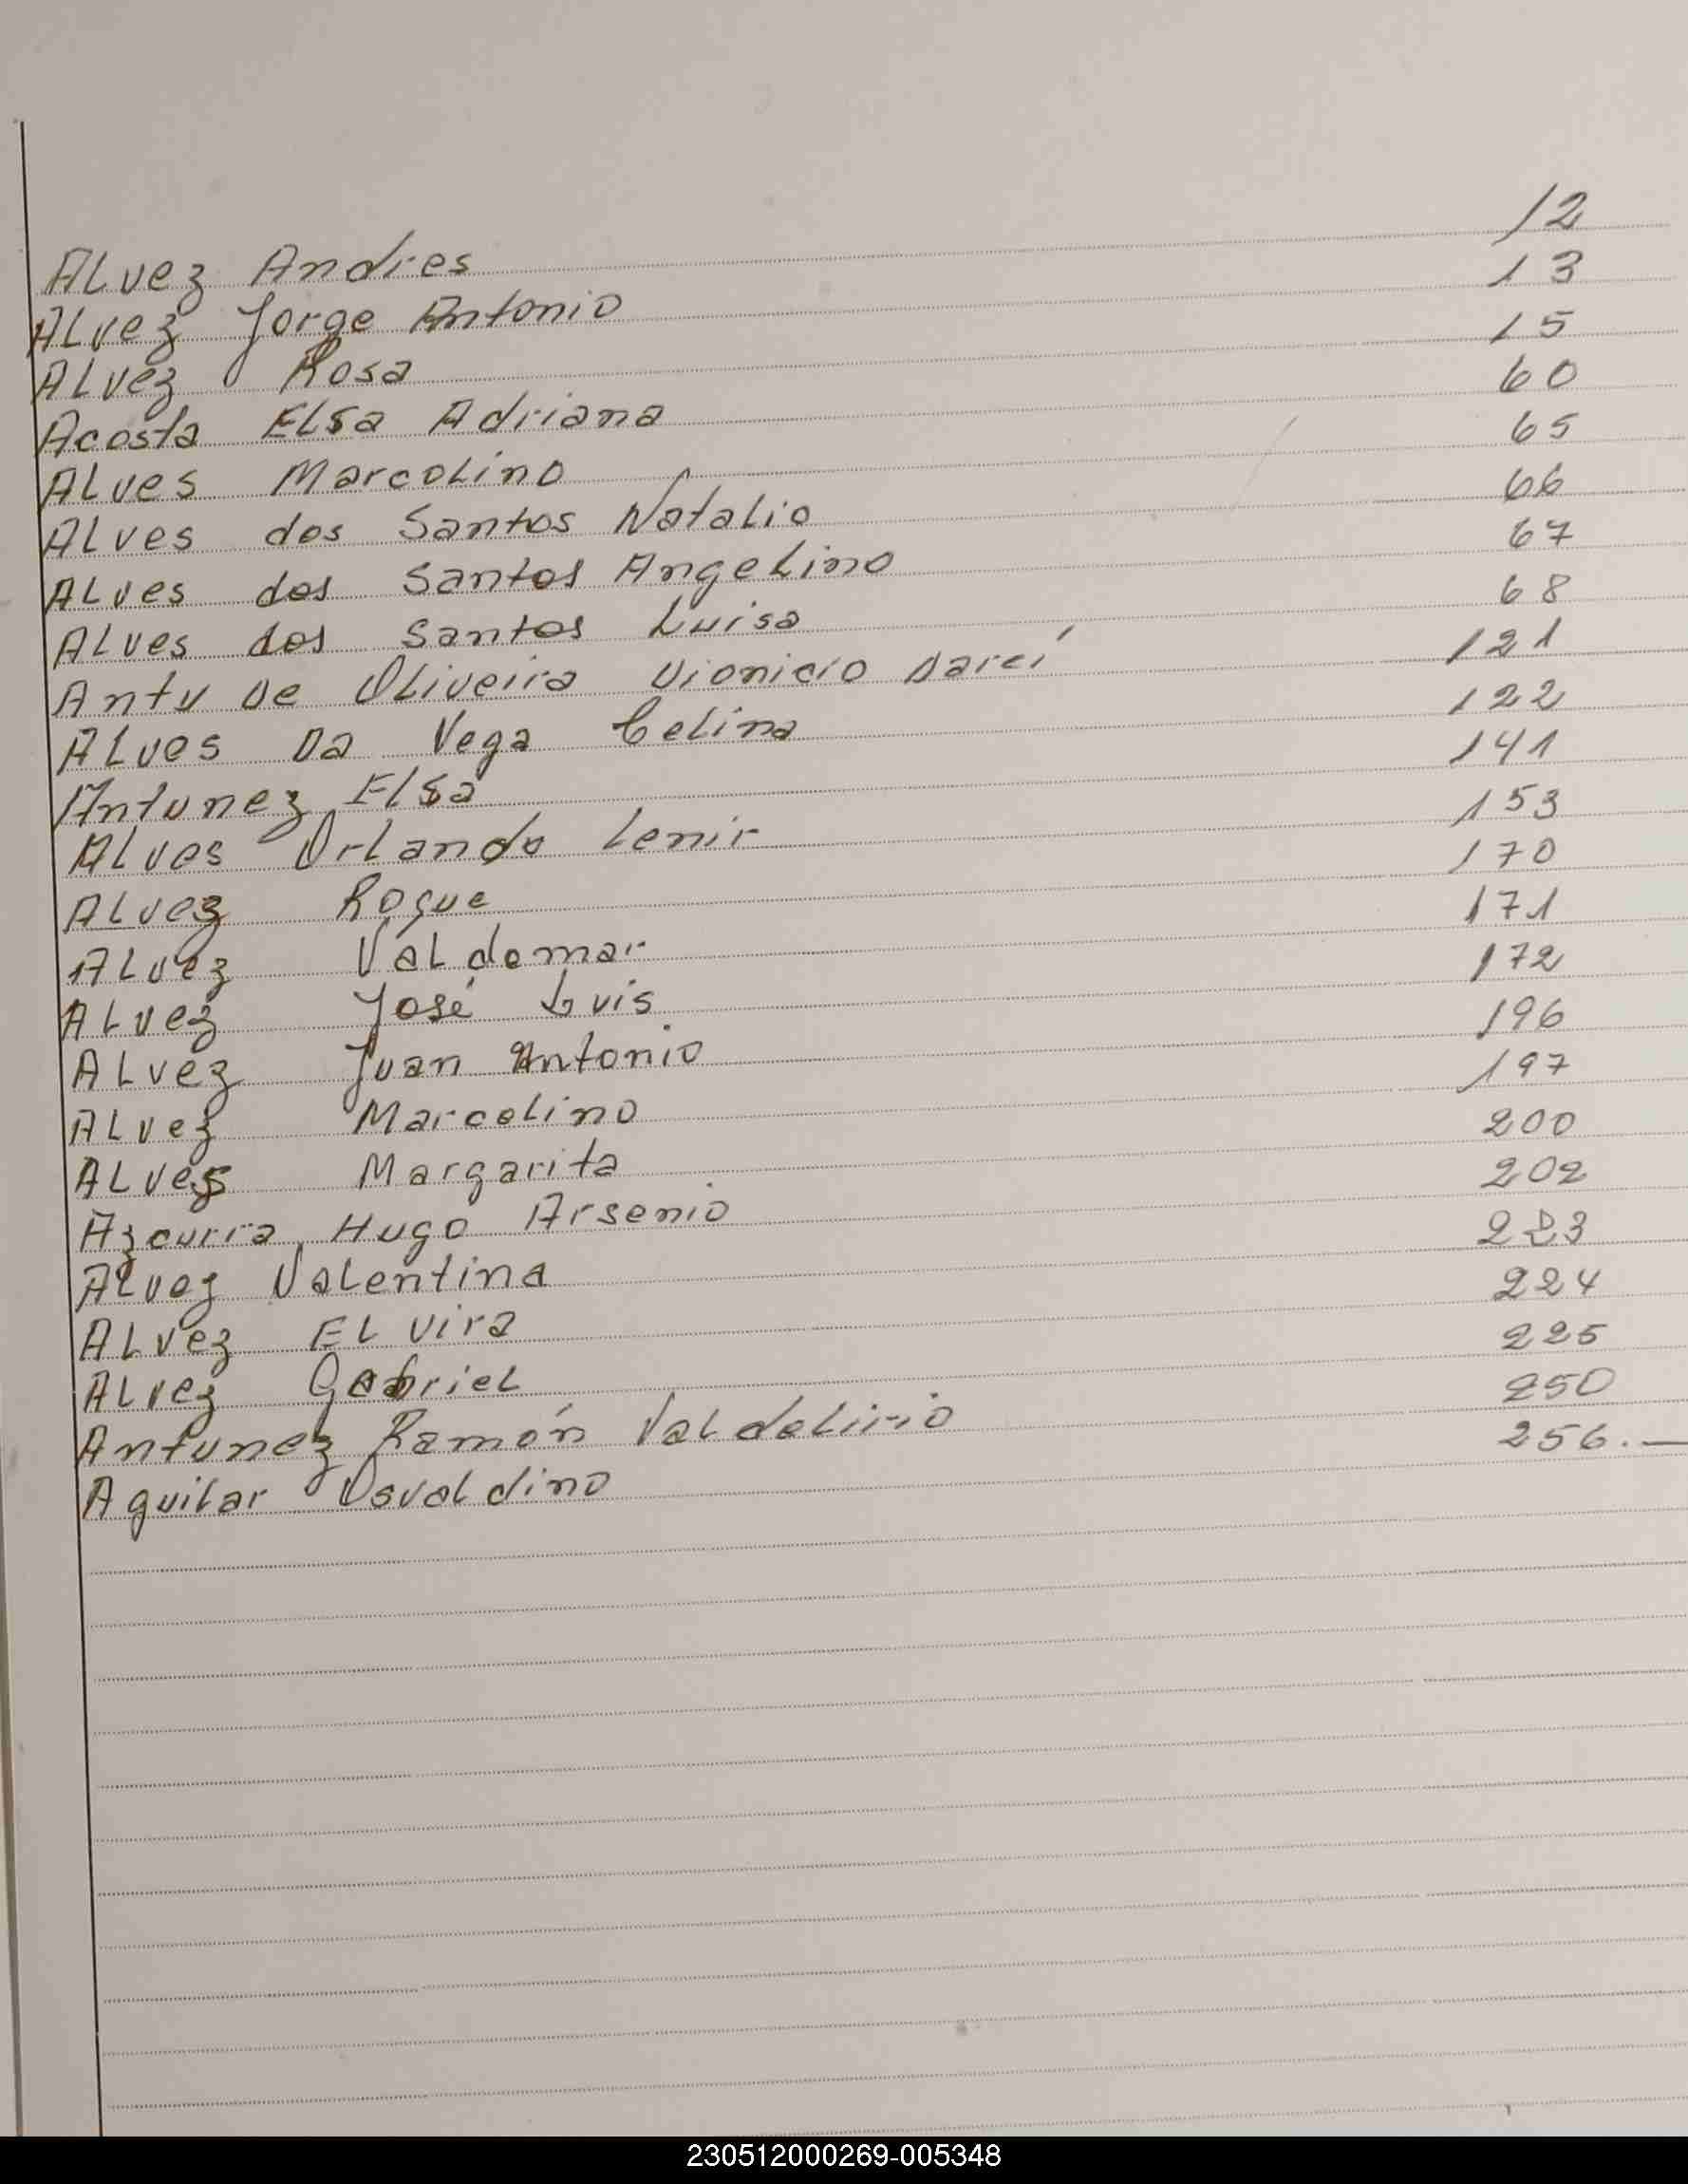 Alvez Andres 12
Alvez Jorge Antonio 13
Alvez Rosa 15
Acosta Elsa Adriana 60
Alves Marcolino 65
Alves dos Santos Natalio 66
Alves dos Santos Angelino 67
Alves dos Santos Luisa 68
Antu De Oliveira Dionicio Darcí 121
Alves Da Vega Celina 122
Antunez Elsa 141
Alves Orlando Lenir 153
Alvez Roque 170
Alvez Valdomar 171
Alvez José Luis 172
Alvez Juan Antonio 196
Alvez Marcelino 197
Alves Margarita 200
Azcurra Hugo Arsenio 202
Alvez Valentina 223
Alvez Elvira 224
Alvez Gabriel 225
Antunez Ramón Valdelirio 250
Aguilar Osvaldino 256.—
230512000269-005348